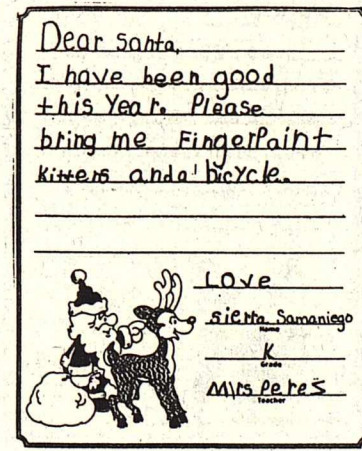 Dear Santa,
I have been good
this Year. Please
bring me FingerPaint
kittens and a bicycle.
LOVE
Sierra Samaniego
Name
K
Grade
Mrs Peres
Teacher